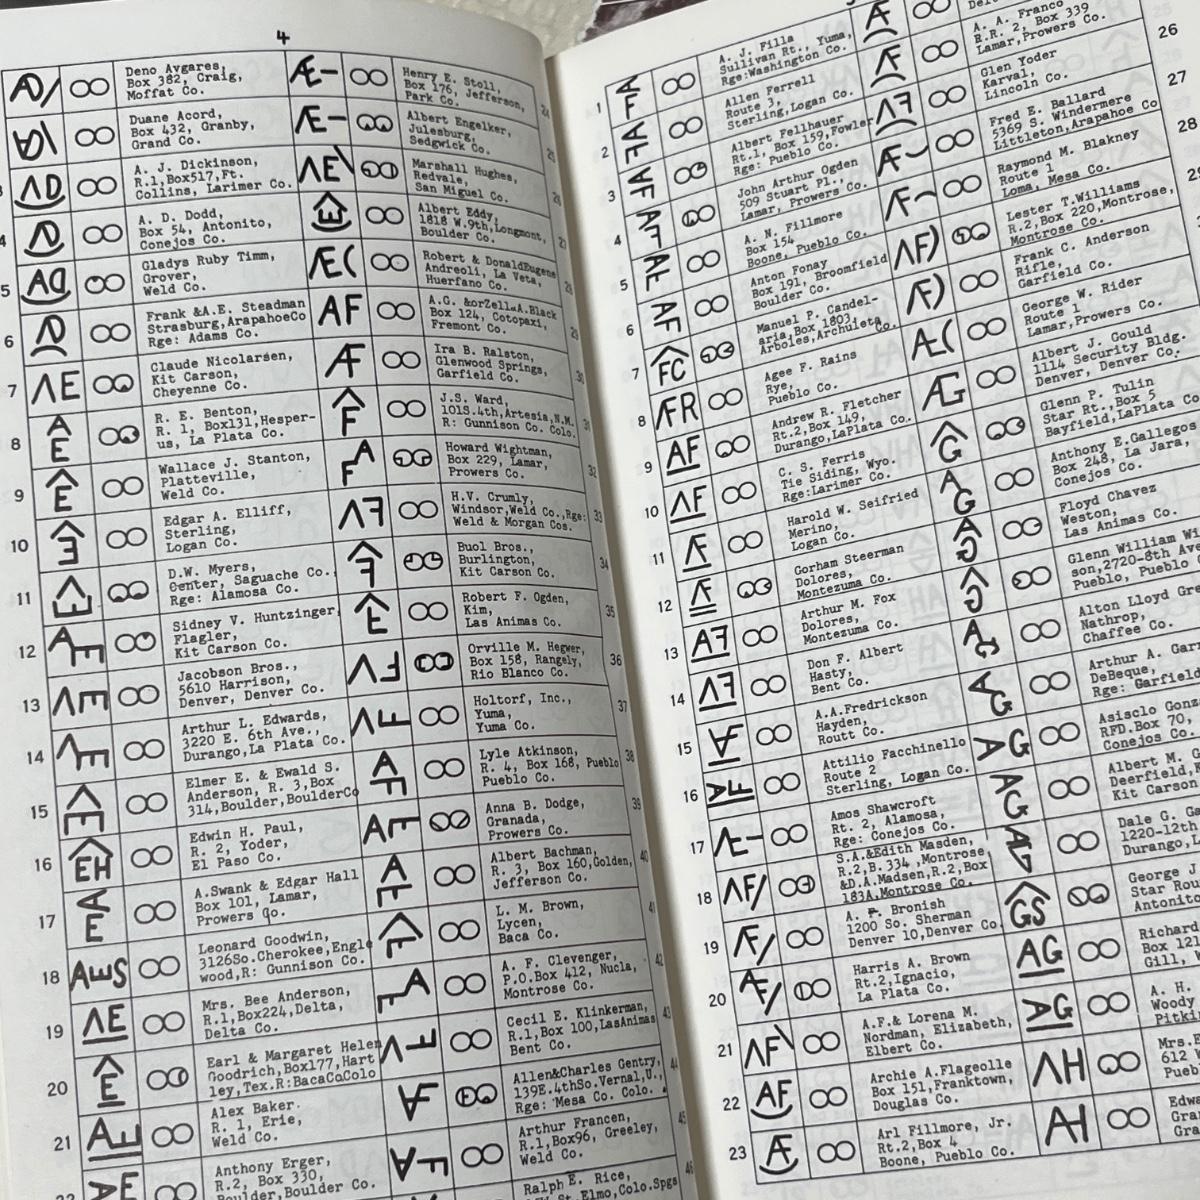 4
Deno Avgares,
Box 382, Craig,
Moffat Co.
Duane Acord,
Box 432, Granby,
Grand Co.
A. J. Dickinson,
R.1,Box517,Ft.
Collins, Larimer Co.
A. D. Dodd,
Box 54, Antonito,
Conejos Co.
5
Gladys Ruby Timm,
Grover,
Weld Co.
6
Frank &A.E. Steadman
Strasburg,ArapahoeCo
Rge: Adams Co.
7
AE
Claude Nicolarsen,
Kit Carson,
Cheyenne Co.
8
R. E. Benton,
R. 1, Box131,Hesper-
us, La Plata Co.
9
Wallace J. Stanton,
Platteville,
Weld Co.
10
Edgar A. Elliff,
Sterling,
Logan Co.
11
D.W. Myers,
Center, Saguache Co.
Rge: Alamosa Co.
12
Sidney V. Huntzinger,
Flagler,
Kit Carson Co.
13
Jacobson Bros.,
5610 Harrison,
Denver, Denver Co.
14
Arthur L. Edwards,
3220 E. 6th Ave.,
Durango,La Plata Co.
15
Elmer E. & Ewald S.
Anderson, R. 3,Box
314,Boulder,BoulderCo
16
Edwin H. Paul,
R. 2, Yoder,
El Paso Co.
17
A.Swank & Edgar Hall
Box 101, Lamar,
Prowers Co.
18
AES
Leonard Goodwin,
3126So.Cherokee,Engle
wood,R: Gunnison Co.
19
Mrs. Bee Anderson,
R.1,Box224,Delta,
Delta Co.
20
Earl & Margaret Helen
Goodrich,Box177,Hart
ley,Tex.R:BacaCoColo
21
Alex Baker.
R. 1, Erie,
Weld Co.
Anthony Erger,
R.2, Box 330,
Boulder,Boulder Co.
Henry E. Stoll,
Box 176, Jefferson,
Park Co.
24
Albert Engelker,
Julesburg,
Sedgwick Co.
25
Marshall Hughes,
Redvale,
San Miguel Co.
26
Albert Eddy,
1818 W.9th,Longmont,
Boulder Co.
27
Robert & DonaldEugene
Andreoli, La Veta,
Huerfano Co.
28
AF
A.G. &orZellaA.Black
Box 124, Cotopaxi,
Fremont Co.
29
Ira B. Ralston,
Glenwood Springs,
Garfield Co.
30
J.S. Ward,
101S.4th,Artesia,N.M.
R: Gunnison Co. Colo.
31
Howard Wightman,
Box 229, Lamar,
Prowers Co.
32
H.V. Crumly,
Windsor,Weld Co.,Rge:
Weld & Morgan Cos.
33
Buol Bros.,
Burlington,
Kit Carson Co.
34
Robert F. Ogden,
Kim,
Las Animas Co.
35
Orville M. Hegwer,
Box 158, Rangely,
Rio Blanco Co.
36
Holtorf, Inc.,
Yuma,
Yuma Co.
37
Lyle Atkinson,
R. 4, Box 168, Pueblo
Pueblo Co.
38
Anna B. Dodge,
Granada,
Prowers Co.
39
Albert Bachman,
R. 3, Box 160,Golden,
Jefferson Co.
40
L. M. Brown,
Lycen,
Baca Co.
41
A. F. Clevenger,
P.O.Box 412, Nucla,
Montrose Co.
42
Cecil E. Klinkerman,
R.1,Box 100,LasAnimas
Bent Co.
43
Allen&Charles Gentry,
139E.4thSo.Vernal,U.,
Rge: Mesa Co. Colo.
44
Arthur Francen,
R.1,Box96, Greeley,
Weld Co.
45
Ralph E. Rice,
St.Elmo,Colo.Spgs
46
1
A. J. Filla
Sullivan Rt., Yuma,
Rge:Washington Co.
2
Allen Ferrell
Route 3,
Sterling,Logan Co.
3
Albert Fellhauer
Rt.1, Box 159,Fowler
Rge: Pueblo Co.
4
John Arthur Ogden
509 Stuart Pl.,
Lamar, Prowers Co.
5
A. N. Fillmore
Box 154
Boone, Pueblo Co.
6
AF
Anton Fonay
Box 191, Broomfield
Boulder Co.
7
Manuel P. Candel-
aria,Box 1803,
Arboles,Archuleta Co.
8
Agee F. Rains
Rye,
Pueblo Co.
9
AF
Andrew R. Fletcher
Rt.2,Box 149,
Durango,LaPlata Co.
10
C. S. Ferris
Tie Siding, Wyo.
Rge:Larimer Co.
11
Harold W. Seifried
Merino,
Logan Co.
12
Gorham Steerman
Dolores,
Montezuma Co.
13
Arthur M. Fox
Dolores,
Montezuma Co.
14
Don F. Albert
Hasty,
Bent Co.
15
A.A.Fredrickson
Hayden,
Routt Co.
16
Attilio Facchinello
Route 2
Sterling, Logan Co.
17
Amos Shawcroft
Rt. 2, Alamosa,
Rge: Conejos Co.
18
S.A.&Edith Masden,
R.2,B.334 ,Montrose
&D.A.Madsen,R.2,Box
183A,Montrose Co.
19
A. F. Bronish
1200 So. Sherman
Denver 10,Denver Co.
20
Harris A. Brown
Rt.2,Ignacio,
La Plata Co.
21
A.F.& Lorena M.
Nordman, Elizabeth,
Elbert Co.
22
AF
Archie A.Flageolle
Box 151,Franktown,
Douglas Co.
23
Arl Fillmore, Jr.
Rt.2,Box 4
Boone, Pueblo Co.
A. A. Franco
R.R. 2, Box 339
Lamar,Prowers Co.
26
Glen Yoder
Karval,
Lincoln Co.
27
Fred E. Ballard
5369 S. Windermere
Littleton,Arapahoe Co
28
Raymond M. Blakney
Route 1
Loma, Mesa Co.
Lester T.Williams
R.2,Box 220,Montrose,
Montrose Co.
Frank C. Anderson
Rifle,
Garfield Co.
George W. Rider
Route 1
Lamar,Prowers Co.
Albert J. Gould
1114 Security Bldg.
Denver, Denver Co.
Glenn P. Tulin
Star Rt., Box 5
Bayfield,LaPlata Co
Anthony E.Gallegos
Box 248, La Jara,
Conejos Co.
Floyd Chavez
Weston,
Las Animas Co.
Glenn William Wi
son,2720-8th Ave
Pueblo, Pueblo
Alton Lloyd Gre
Nathrop,
Chaffee Co.
Arthur A. Gar
DeBeque,
Rge: Garfield
AG
Asisclo Gonz
RFD.Box 70,
Conejos Co.
AG
Albert M. G
Deerfield,K
Kit Carson
Dale G. Ga
1220-12th
Durango,L
George J
Star Rou
Antonito
AG
Richard
Box 121
Gill, W
A. H.
Woody
Pitki
AH
Mrs.E
612 W
Puebl
Edwa
Gra
Gra